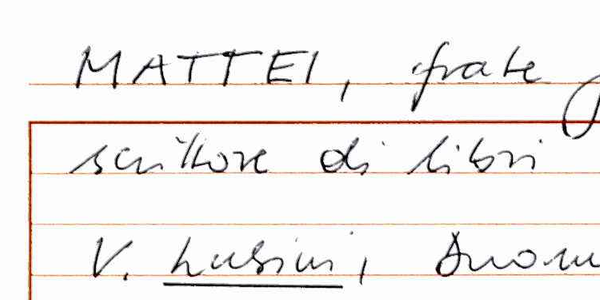 MATTEI, frate
scrittore di libri
V. Lusini, Duom